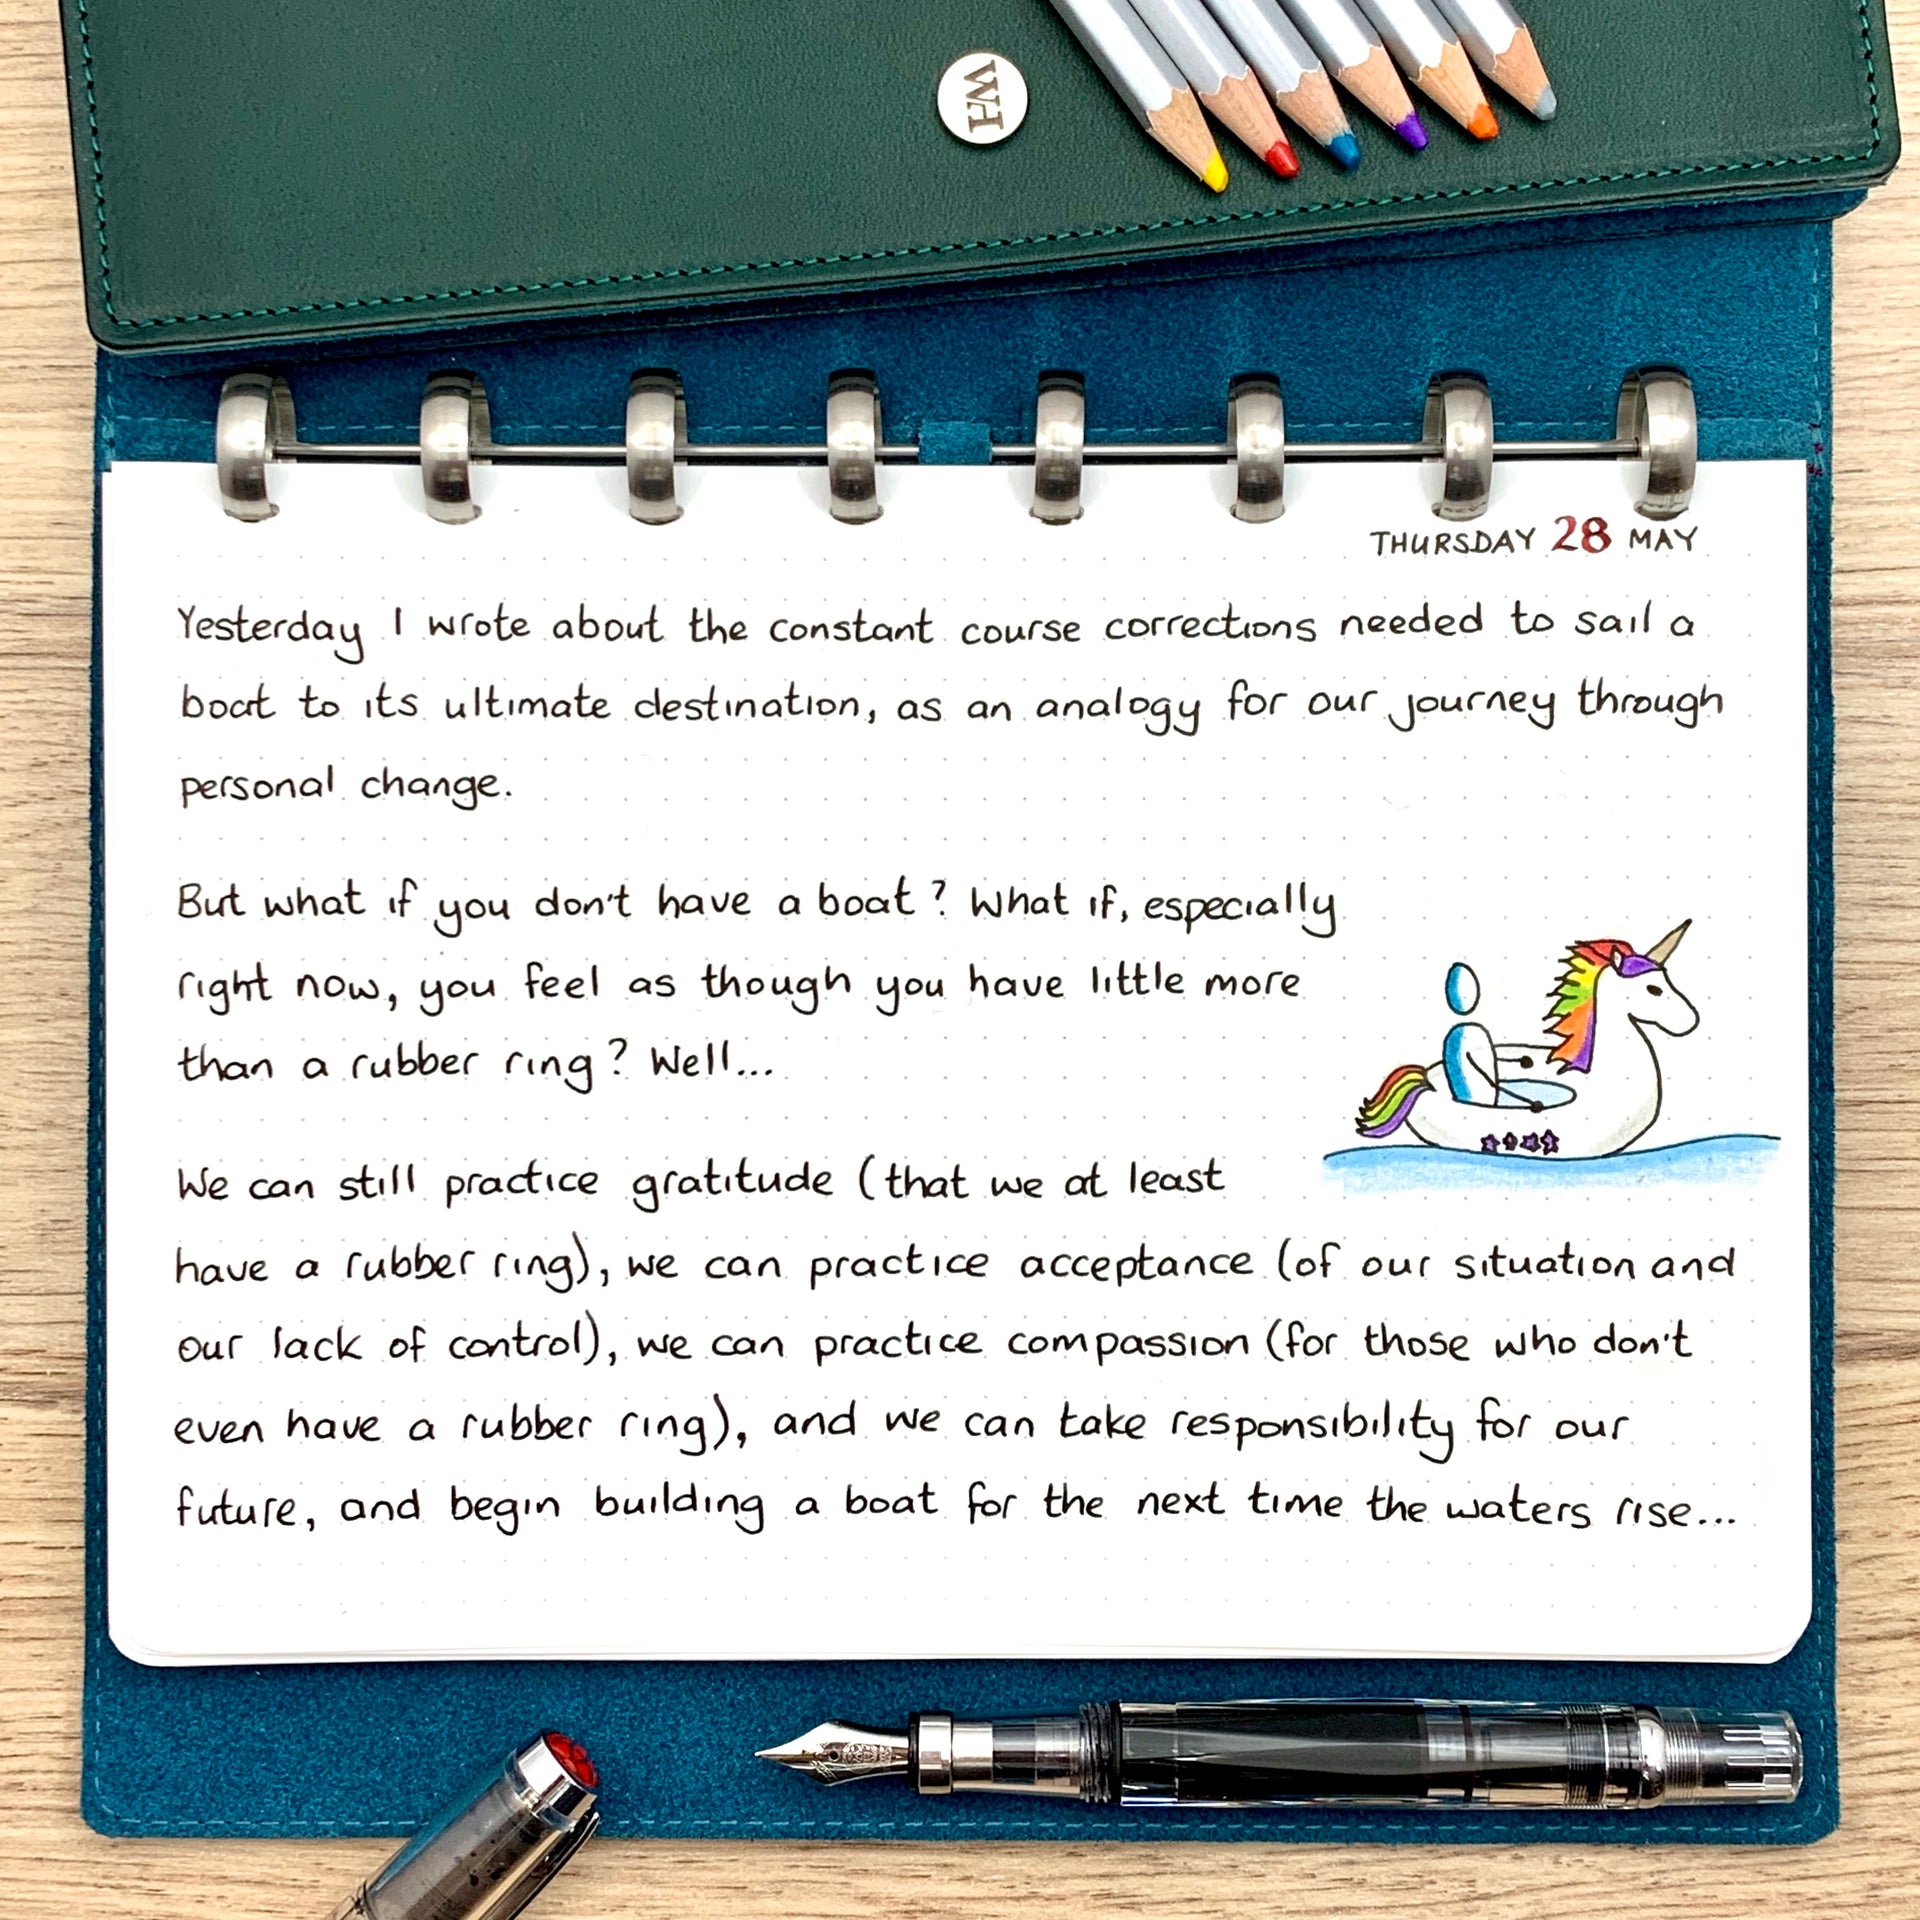 WH
THURSDAY 28 MAY
Yesterday I wrote about the constant course corrections needed to sail a
boat to its ultimate destination, as an analogy for our journey through
personal change.
But what if you don't have a boat? What if, especially
right now, you feel as though you have little more
than a rubber ring? Well...
We can still practice gratitude (that we at least
have a rubber ring), we can practice acceptance (of our situation and
our lack of control), we can practice compassion (for those who don't
even have a rubber ring), and we can take responsibility for our
future, and begin building a boat for the next time the waters rise...